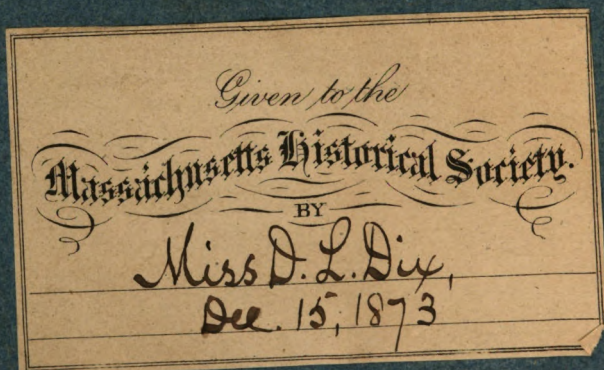 Given to the
Massachusetts Historical Society.
BY
Miss D. L. Dix,
Dec. 15, 1873